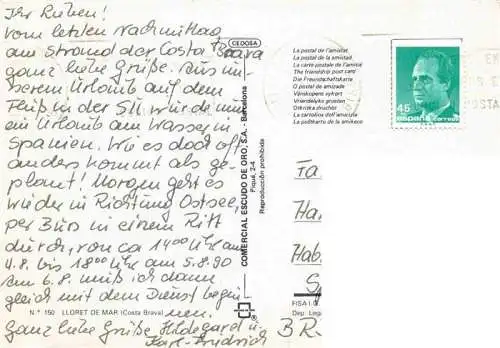 Ihr Lieben!
Vom letzten Nachmittag
am Strand der Costa Brava
ganz liebe Grüße. Aus un-
serem Urlaub auf dem
Fluß in der SU wurde nun
ein Urlaub am Wasser in
Spanien. Wie es doch oft
anders kommt als ge-
plant! Morgen geht es
wieder in Richtung Ostsee,
per Bus in einem Ritt
durch, von ca 14⁰⁰ Uhr am
4.8. bis 18⁰⁰ Uhr am 5.8.90
Am 6.8. muß ich dann
gleich mit dem Dienst begin-
nen.
Ganz liebe Grüße Hildegard u.
Karl-Friedrich
N.º 150 LLORET DE MAR (Costa Brava)
CEDOSA
COMERCIAL ESCUDO DE ORO, S.A. - Barcelona
Piqué, 2-4
Reproducción prohibida
La postal de l'amistat
La postal de la amistad
La carte postale de l'amitié
The friendship post card
Die Freundschaftskarte
O postal de amizade
Vänskapens vykort
Vriendelijke groeten
La cartolina dell'amicizia
45
ESPAÑA correos
Fa
Ha
Hab.
FISA I.G.
Dep. Legal
BR